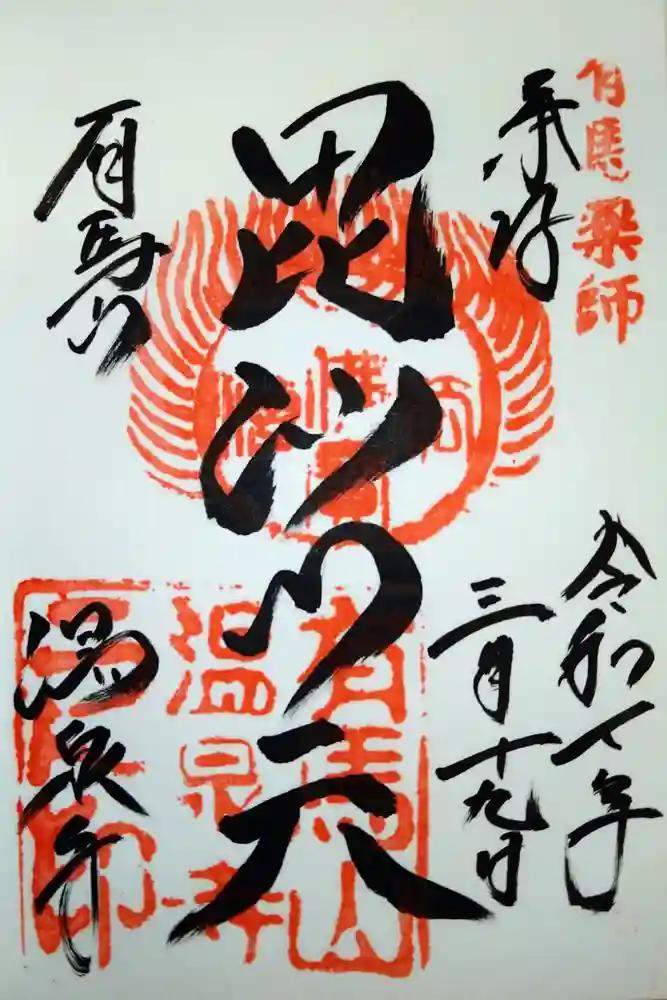 有馬薬師
奉拝
令和 年
三月十九日
毘沙門天
有馬山
温泉寺
有馬山
温泉寺